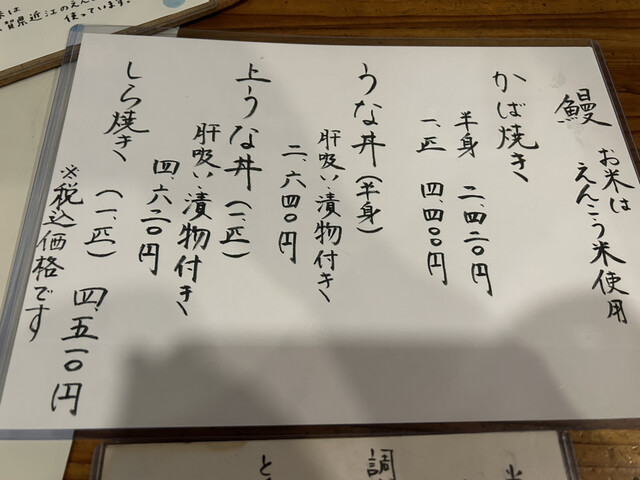 鰻
お米は
えんこう米使用
かば焼き
半身 二、四二〇円
一匹 四、四〇〇円
うな丼(半身)
肝吸い・漬物付き
二、六四〇円
上うな丼(一匹)
肝吸い・漬物付き
四、六二〇円
しら焼き
(一匹) 四、五一〇円
※税込価格です
賀県近江のえん
使っています。
調
と